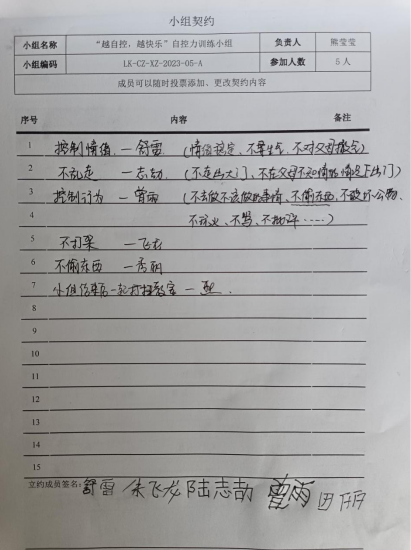 小组契约
小组名称 “越自控，越快乐”自控力训练小组 负责人 熊莹莹
小组编码 LK-CZ-XZ-2023-05-A 参加人数 5人
成员可以随时投票添加、更改契约内容
序号 内容 备注
1 控制情绪 — 舒雷 (情绪稳定、不要生气、不对父母撒气)
2 不乱走 — 志劼 (不走出大门、不在父母不知情的情况下出门)
3 控制行为 — 曾雨 (不去做不该做的事情、不偷东西、不破坏公物、
4 不玩火、不骂、不……)
5 不打架 — 飞龙
6 不偷东西 — 秀丽
7 小组结束后一起打扫教室 — 熊.
8
9
10
11
12
13
14
15
立约成员签名: 舒雷 朱飞龙 陆志劼 曾雨 田